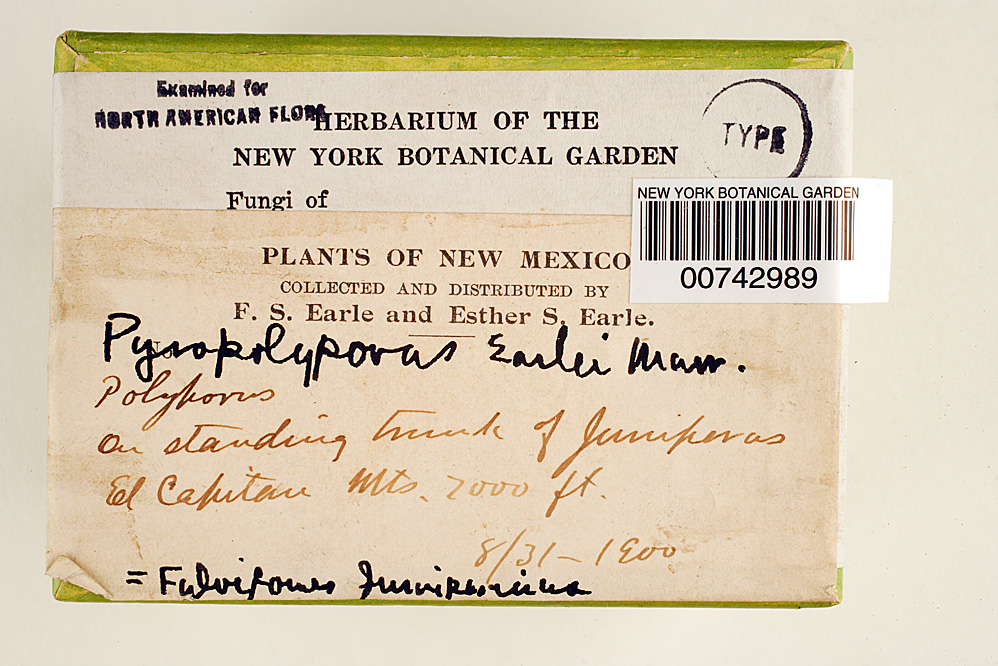 Examined for
NORTH AMERICAN FLORA
HERBARIUM OF THE
NEW YORK BOTANICAL GARDEN
TYPE
Fungi of
NEW YORK BOTANICAL GARDEN
00742989
PLANTS OF NEW MEXICO
COLLECTED AND DISTRIBUTED BY
F. S. Earle and Esther S. Earle.
Pyropolyporus Earlei Murr.
Polyporus
On standing trunk of Juniperus
El Capitan Mts. 7000 ft.
8/31-1900
= Fulvifomes juniperinus